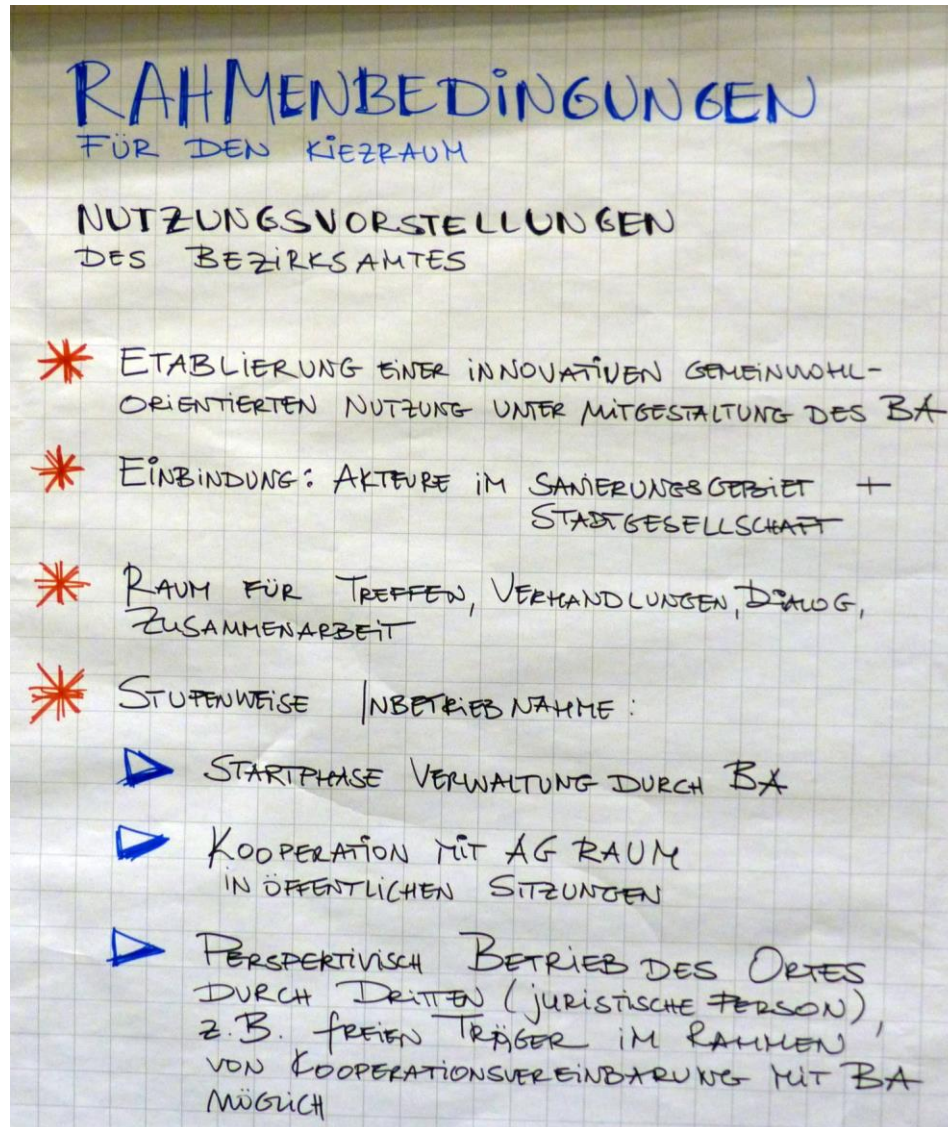 RAHMENBEDINGUNGEN
FÜR DEN KIEZRAUM
NUTZUNGSVORSTELLUNGEN
DES BEZIRKSAMTES
ETABLIERUNG EINER INNOVATIVEN GEMEINWOHL-
ORIENTIERTEN NUTZUNG UNTER MITGESTALTUNG DES BA
EINBINDUNG: AKTEURE IM SANIERUNGSGEBIET +
STADTGESELLSCHAFT
RAUM FÜR TREFFEN, VERHANDLUNGEN, DIALOG,
ZUSAMMENARBEIT
STUFENWEISE INBETRIEBNAHME:
STARTPHASE VERWALTUNG DURCH BA
KOOPERATION MIT AG RAUM
IN ÖFFENTLICHEN SITZUNGEN
PERSPEKTIVISCH BETRIEB DES ORTES
DURCH DRITTEN (JURISTISCHE PERSON),
Z.B. FREIEN TRÄGER IM RAHMEN
VON KOOPERATIONSVEREINBARUNG MIT BA
MÖGLICH